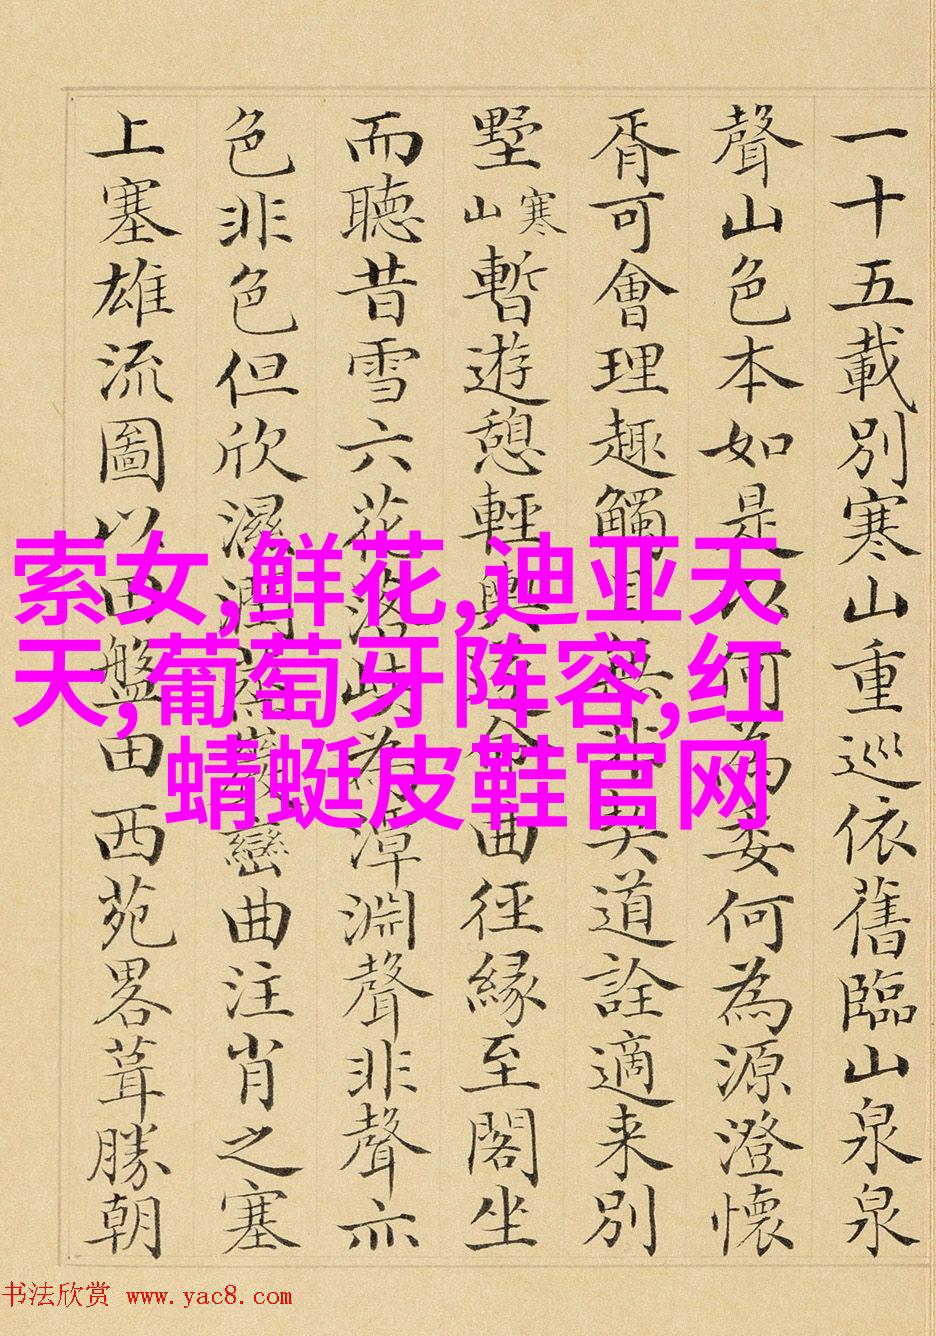 一十五載別寒山重巡依舊臨山泉泉
聲山色本如是何為委何為源澄懷
胥可會理趣觸目無非契道詮適来別
墅寒山暫遊憩輕輿曲徑緣至閣坐
而聽昔雪六花落為潭淵聲非聲亦
色非色但欣濕潤巒曲注肖之塞
上塞雄流圖以盤田西苑畧葺勝朝
索女,鲜花,迪亚天
天,葡萄牙阵容,红
蜻蜓皮鞋官网
书法欣赏 www.yac8.com